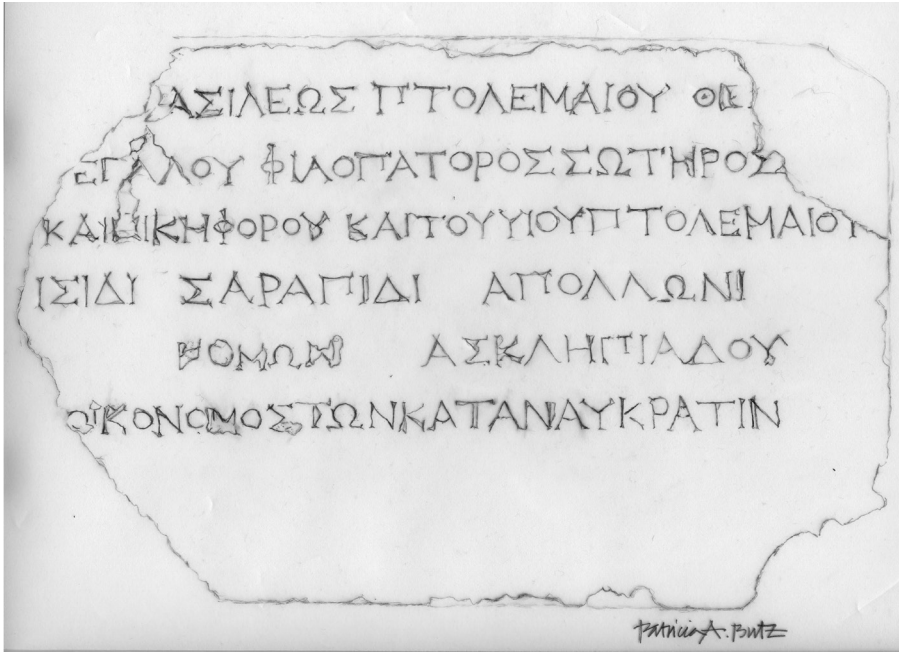 ΑΣΙΛΕΩΣ ΠΤΟΛΕΜΑΙΟΥ ΘΕ
ΕΓΑΛΟΥ ΦΙΛΟΠΑΤΟΡΟΣ ΣΩΤΗΡΟΣ
ΚΑΙ ΝΙΚΗΦΟΡΟΥ ΚΑΙ ΤΟΥ ΥΙΟΥ ΠΤΟΛΕΜΑΙΟΥ
ΙΣΙΔΙ ΣΑΡΑΠΙΔΙ ΑΠΟΛΛΩΝΙ
ΚΟΜΩΝ ΑΣΚΛΗΠΙΑΔΟΥ
ΟΙΚΟΝΟΜΟΣ ΤΩΝ ΚΑΤΑ ΝΑΥΚΡΑΤΙΝ
Patricia A. Butz